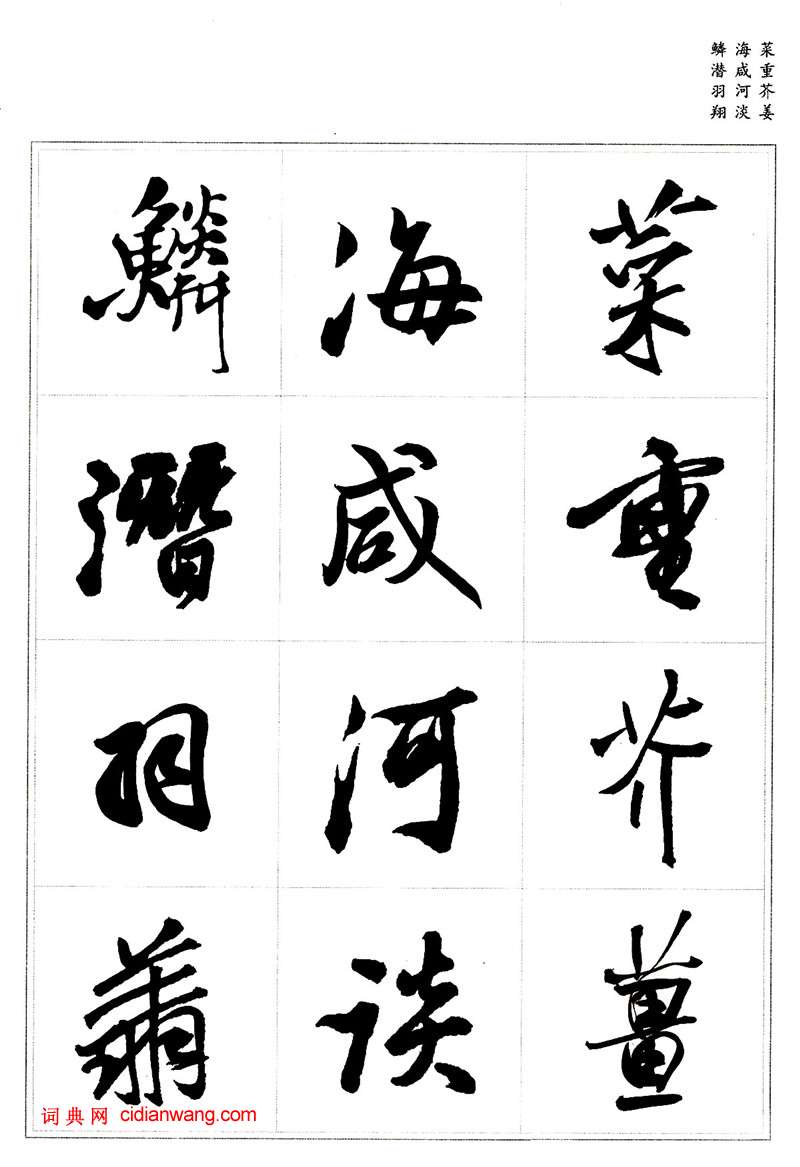 菜重芥姜
海咸河淡
鳞潜羽翔
菜重芥薑
海咸河淡
鱗潛羽翔
词典网 cidianwang.com